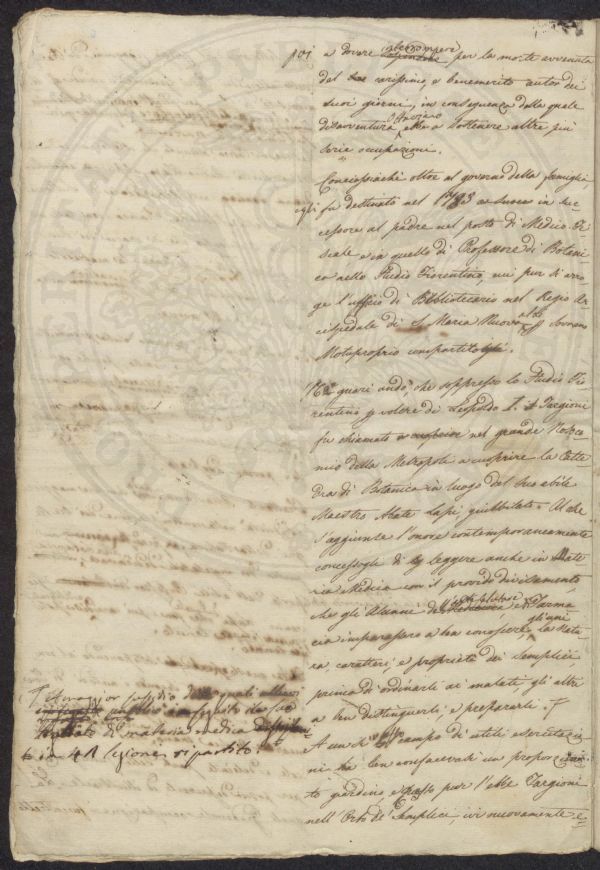 poi a dovere interrompere per la morte avvenuta
del carissimo e benemerito autor dei
suoi giorni, in conseguenza della quale
disavventura ebbe a sostenere altre più
serie occupazioni.
Conciossiachè oltre al governo della famiglia,
egli fu destinato nel 1783 a
al padre nel posto di Medico Fi-
scale e in quello di Professore di Botani-
ca nello Studio Fiorentino, cui pur si arro-
ge l'uffizio di Bibliotecario nel Regio Ar-
cispedale di S. Maria Nuova Sovrano
Motuproprio
guari andò, che soppresso lo Studio Fio-
rentino p volere di Leopoldo I. il Targioni
fu chiamato nel grande Nosoco-
mio della Metropoli a cuoprire la Catte-
dra di Botanica in luogo del suo abile
Maestro Abate Lapi giubbilato. Al che
s'aggiunse l'onore contemporaneamente
concessogli di leggere anche in Mate-
ria Medica con il provido divisamento,
che gli Alunni di e di Farma-
cia imparassero a ben conoscere la Natu-
ra, caratteri, e proprietà dei Semplici,
prima di ordinarli ai malati gli
a ben distinguerli, e prepararli.
A campo di utili esercitazio-
ni ha ben confacevasi un proporziona-
to giardino, e pur l'ebbe Targioni
nell'Orto de' Semplici, ivi nuovamente e-
A maggior sussidio de quali
da suo
trattato di materia medica
to in 41 lezione ripartito